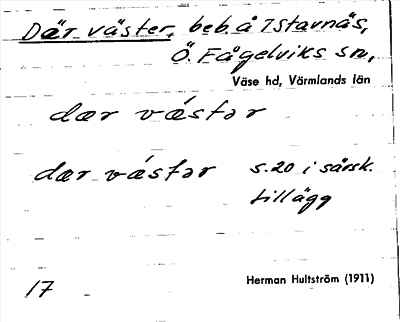 Där väster, beb. å Istavnäs,
Ö. Fågelviks sn,
Väse hd, Värmlands län
dær vǽstər
dær vǽstər s. 20 i särsk.
tillägg
17
Herman Hultström (1911)